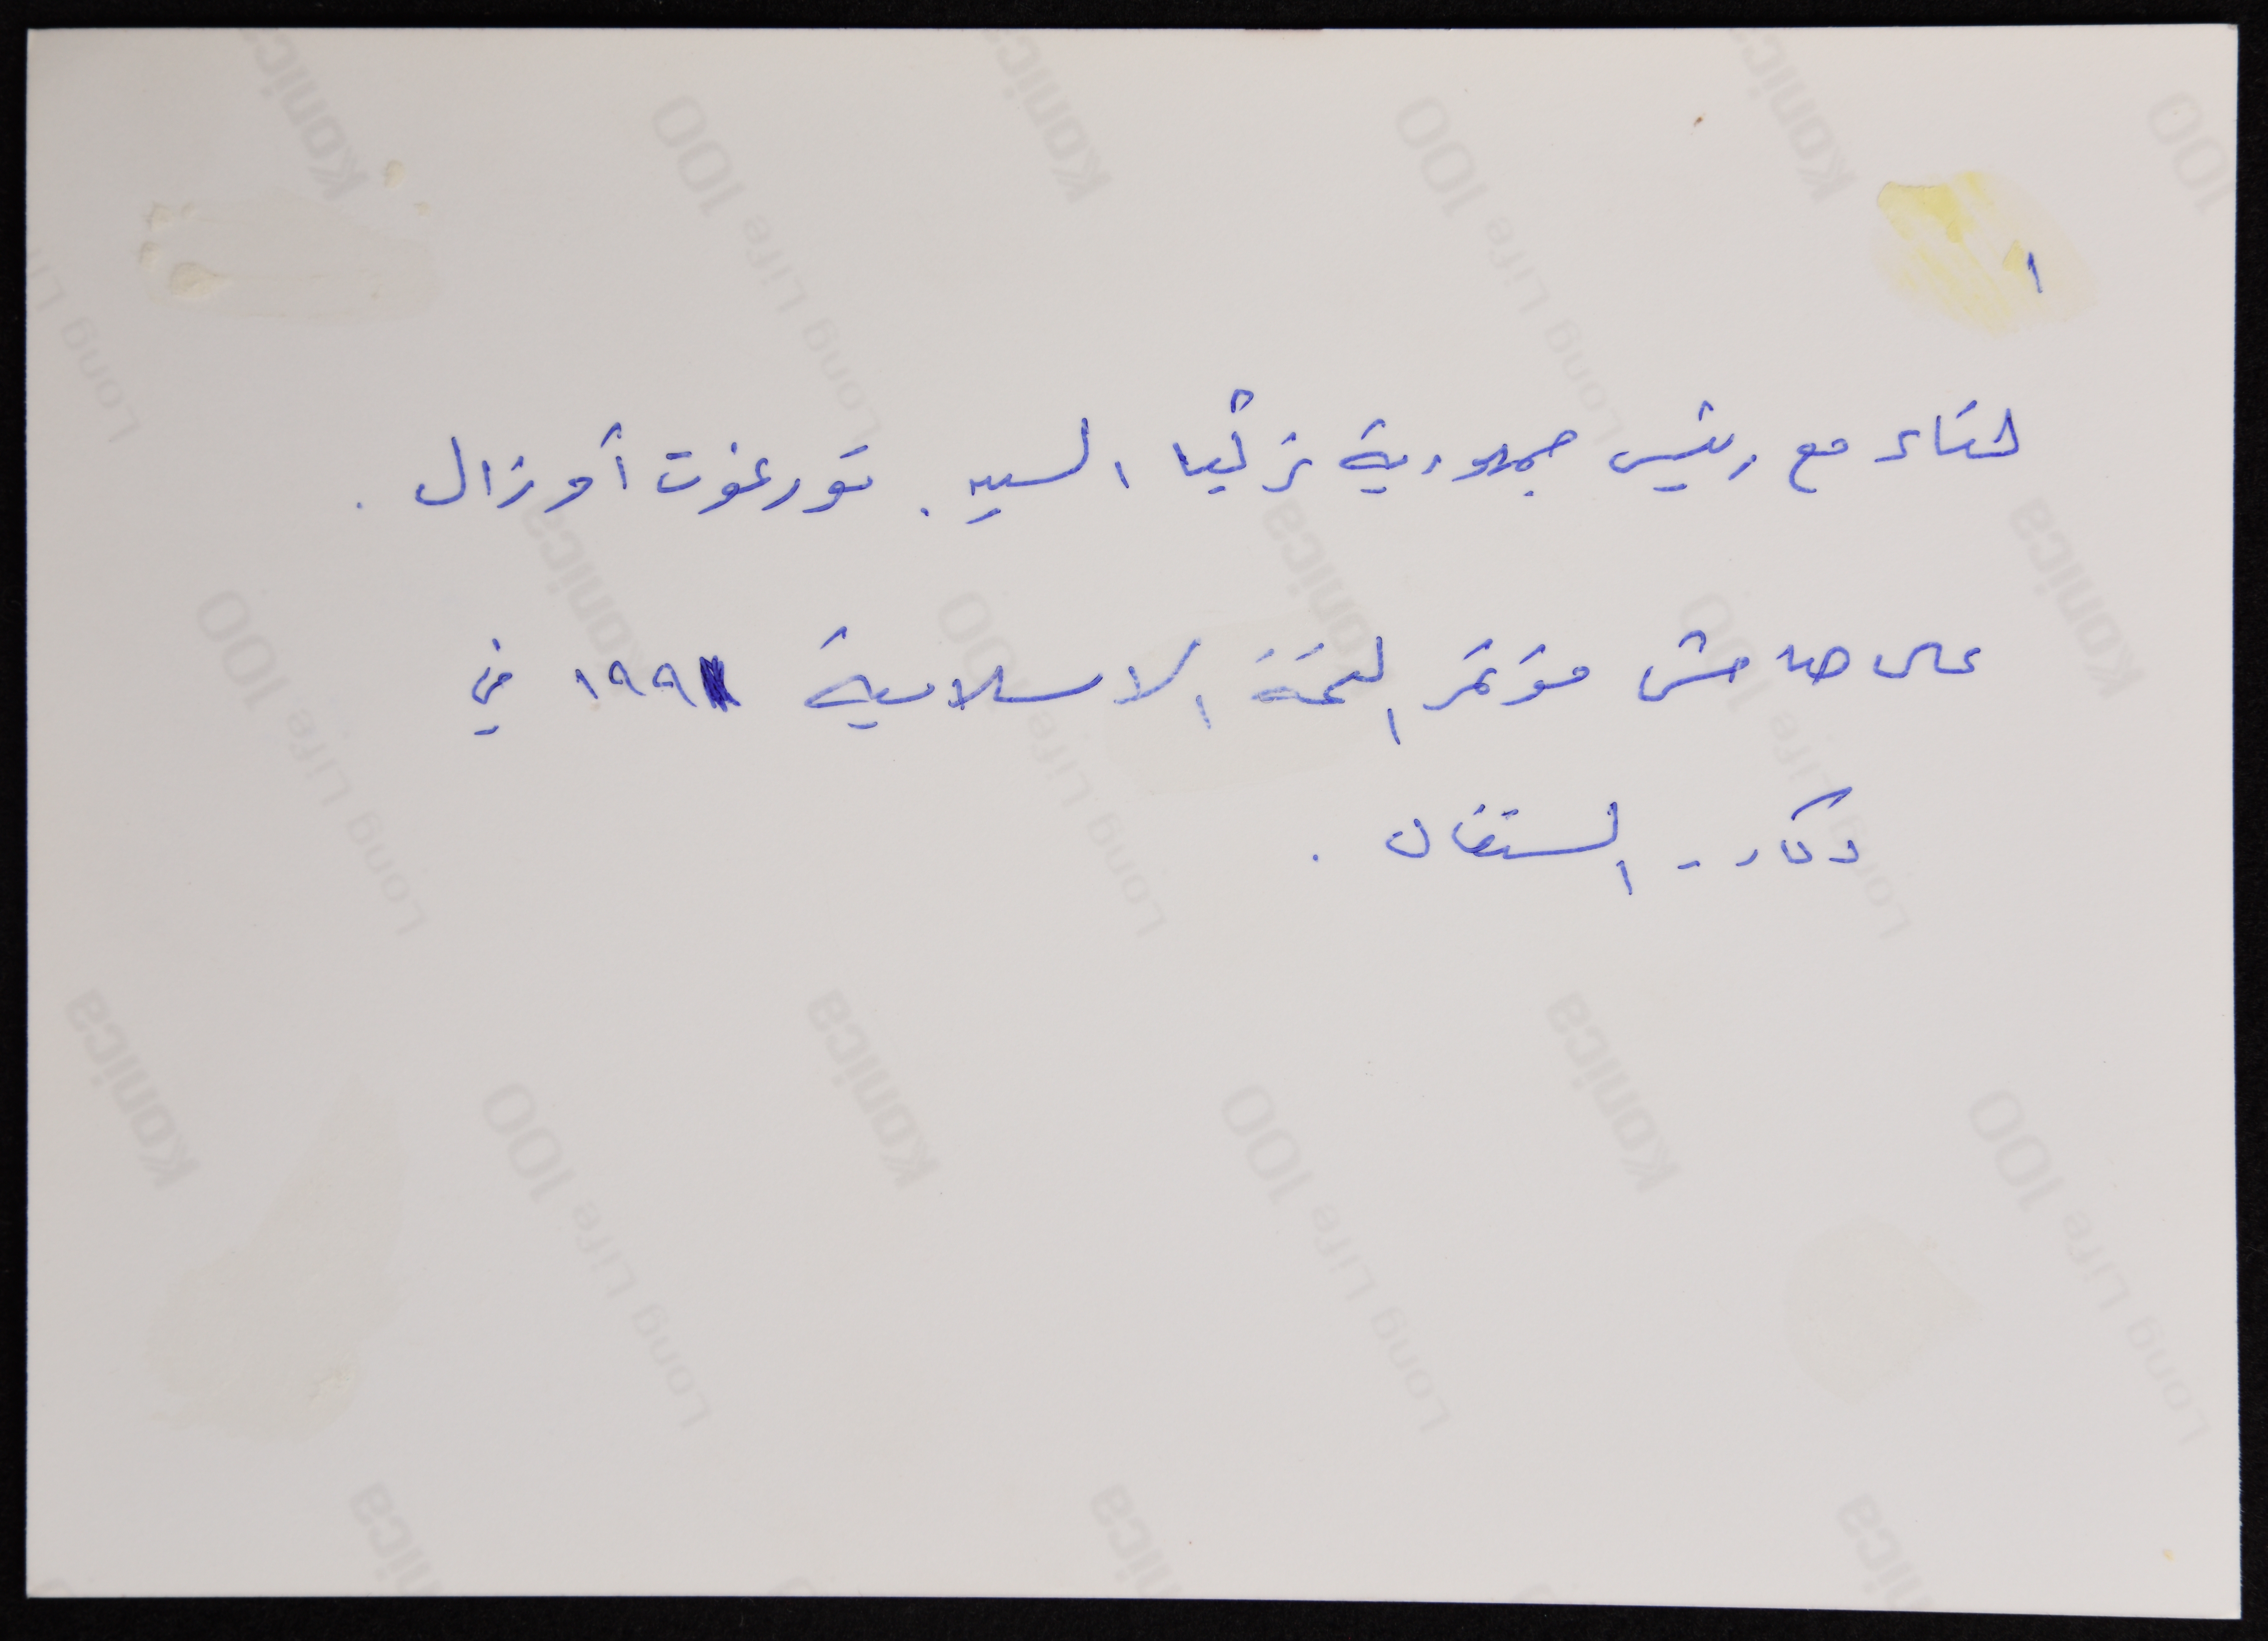 ١
لقاء مع رئيس جمهورية تركيا السيد. تورغوت أوزال .
على هامش مؤتمر القمة الاسلامية ١٩٩١ في
دكار - السنغال .
Konica
Long Life 100